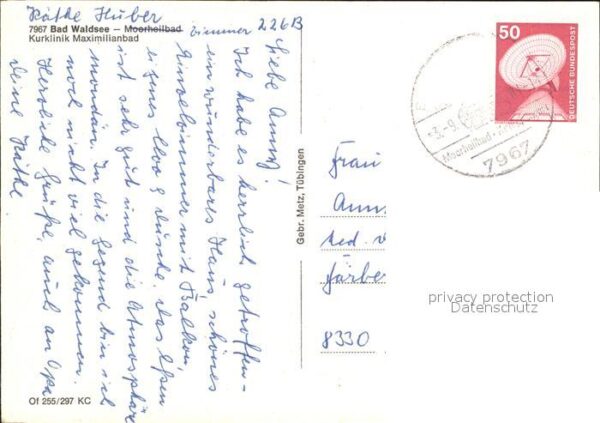 Käthe Huber
7967 Bad Waldsee – Moorheilbad
Kurklinik Maximilianbad
Zimmer 226B
Liebe Anny!
Ich habe es herrlich getroffen –
ein wunderbares Haus, schönes
Einzelzimmer mit Balkon,
eigenes Clo & Dusche. Das Essen
ist sehr gut und die Atmosphäre
mondän. In die Gegend bin ich
noch nicht viel gekommen.
Herzliche Grüße, auch an Opa
Deine Käthe
Of 255/297 KC
Gebr. Metz, Tübingen
50
DEUTSCHE BUNDESPOST
-3.-9.
Moorheilbad
7967
Frau
8330
privacy protection
Datenschutz